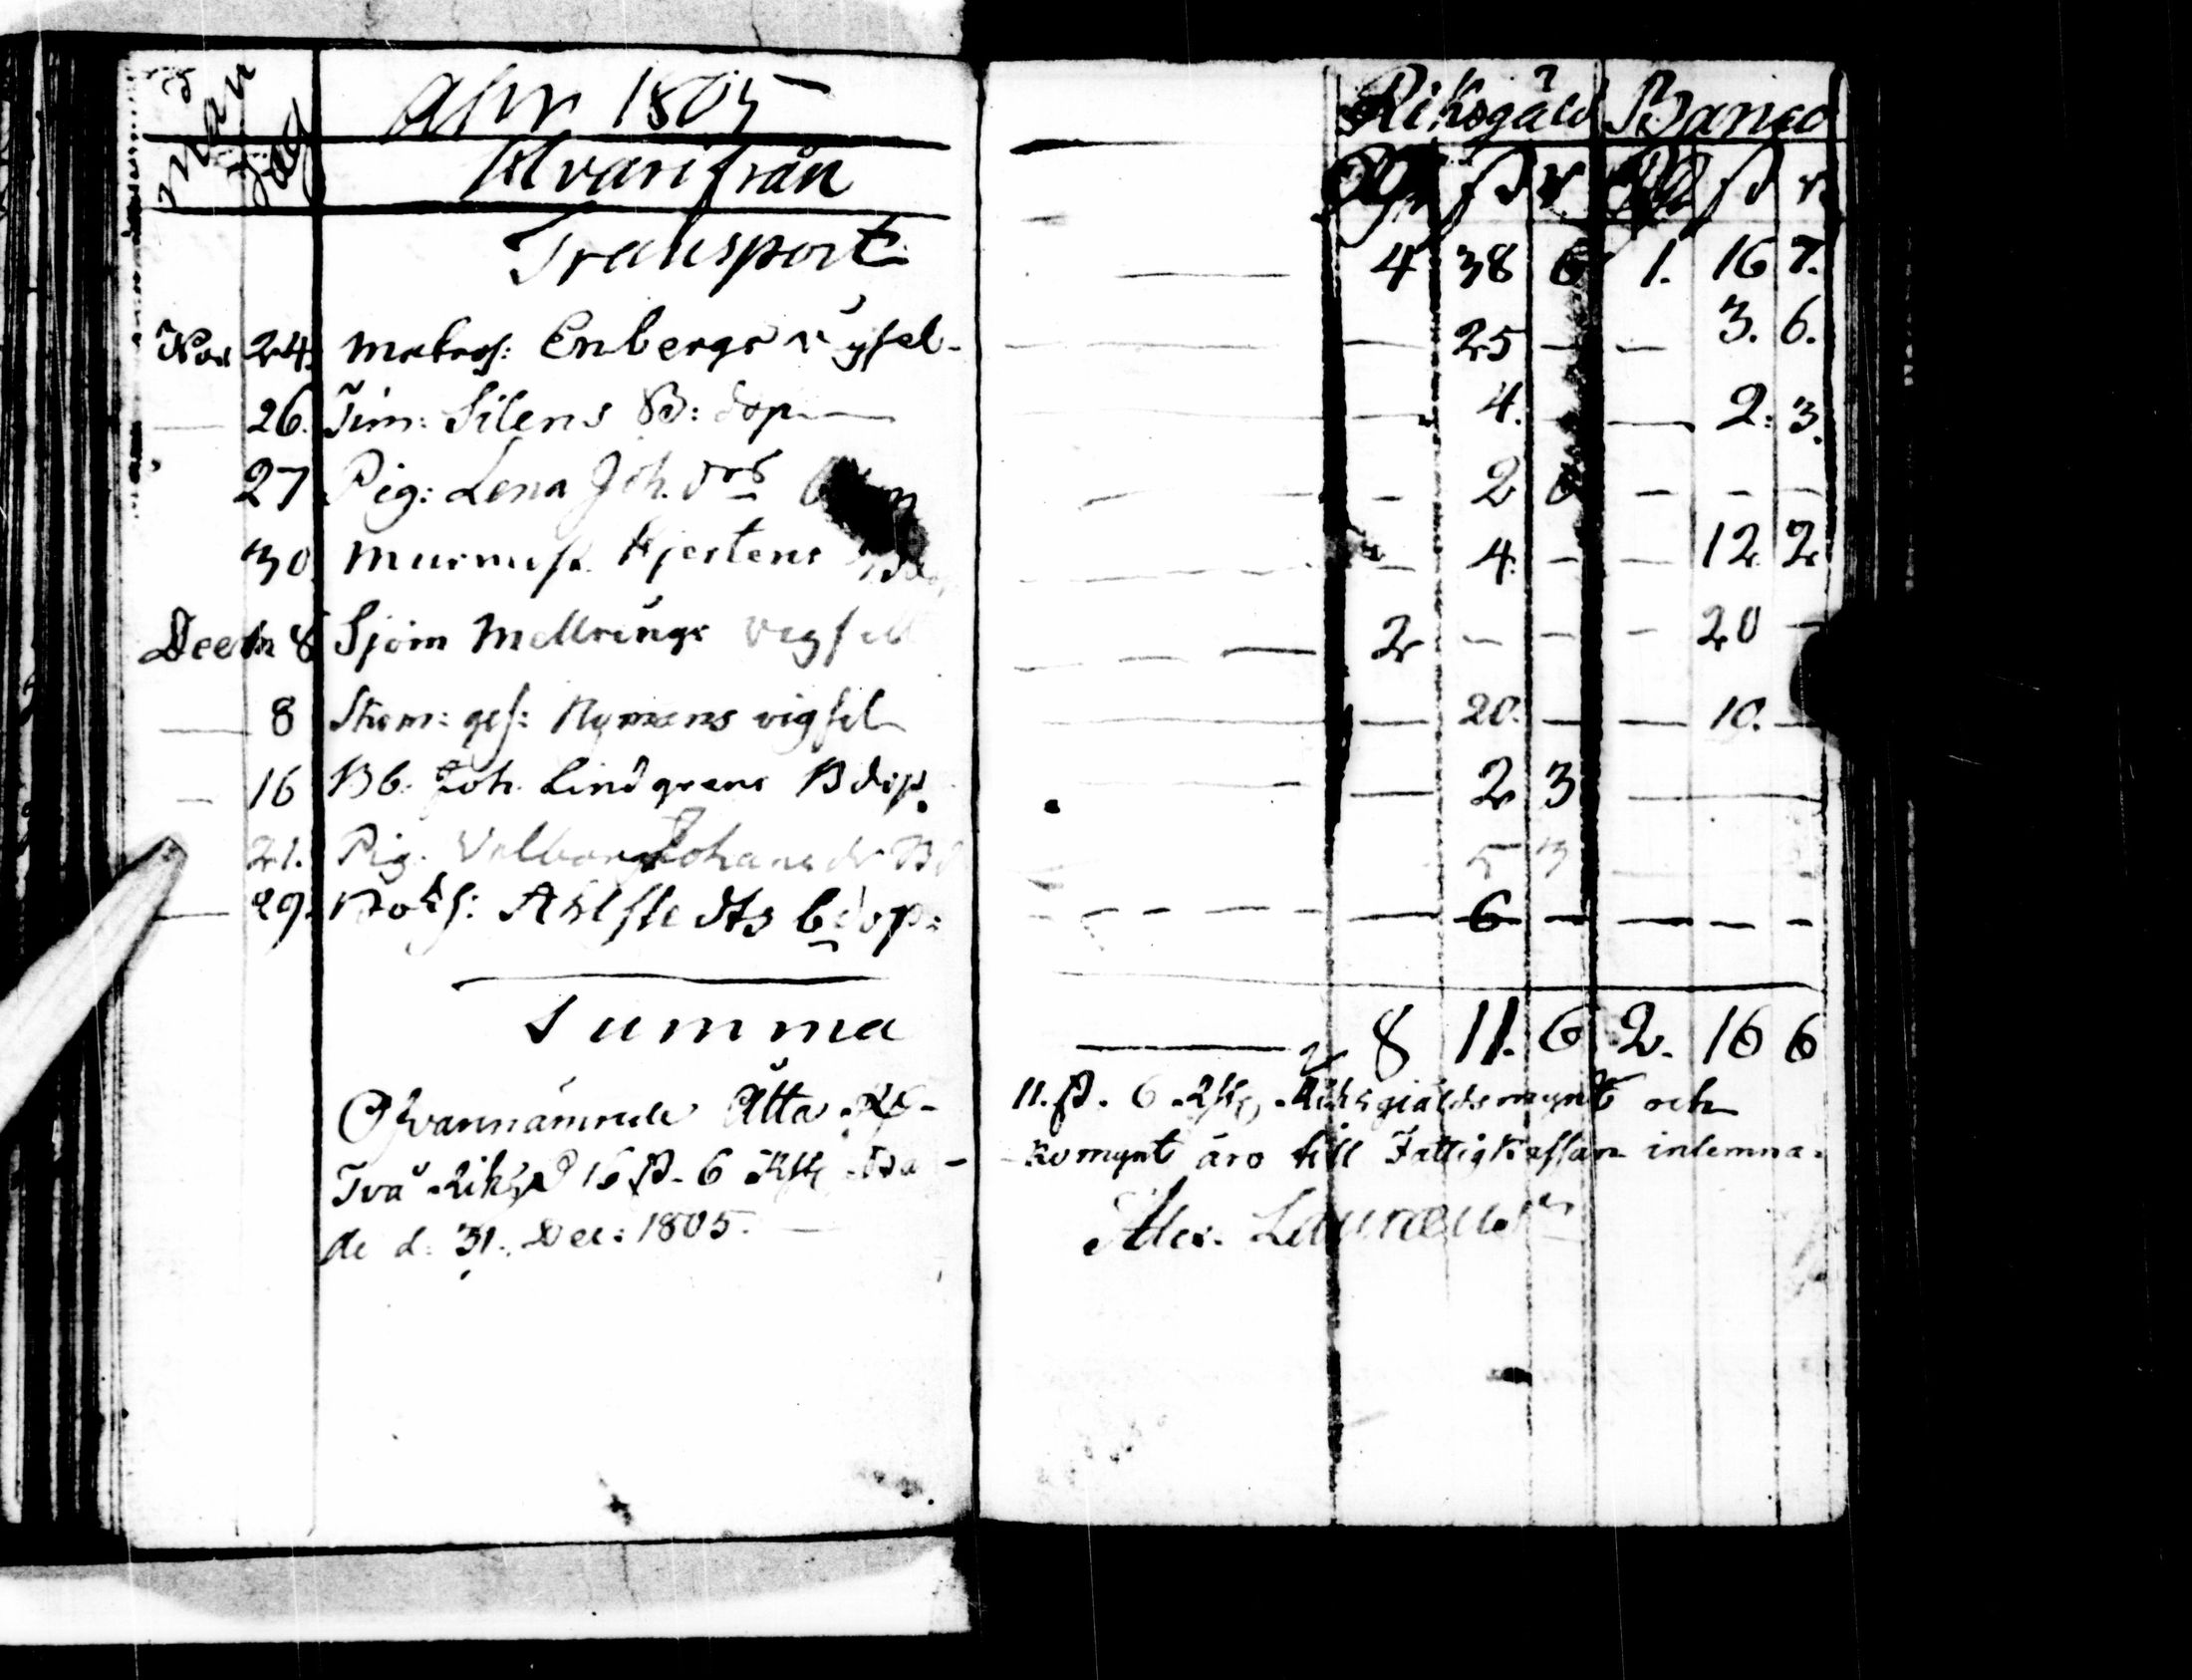 Månn dag åhr 1805 Riksgäld Banco
Hvarifrån Rd ß r Rd ß r
Transport 4 38 6 1. 16 7.
Nov 24. Matros: Enbergs vigsel - 25 - - 3. 6.
— 26. Tim: Silens B: dop — 4. — 2: 3.
27 Pig: Lena Joh. drs 2 6 - - -
30. Murmest. Kjerlens - 4. - - 12 2
Decem 8 Sjöm Mellrings vigsel 2 - - - 20 -
— 8 Skom: ges: Nymans vigsel — 20. — — 10. —
— 16 Bb. Joh. Lindgrens Bdop. — 2 3 —
21. Pig. Valborg Johansdr Bd 5 3
— 29. Bokh: Ahlstedts bdop: — 6 — — — -
Summa — 8 11. 6 2. 16 6
Ofvannämnde Åtta Rd 11. ß. 6 rst. Riksgiäldsmynt och
Två Riksd 16 ß. 6 rst Ba- komynt äro till Fattigkassan inlemna-
de d. 31. Dec: 1805. — Alex. Laureus